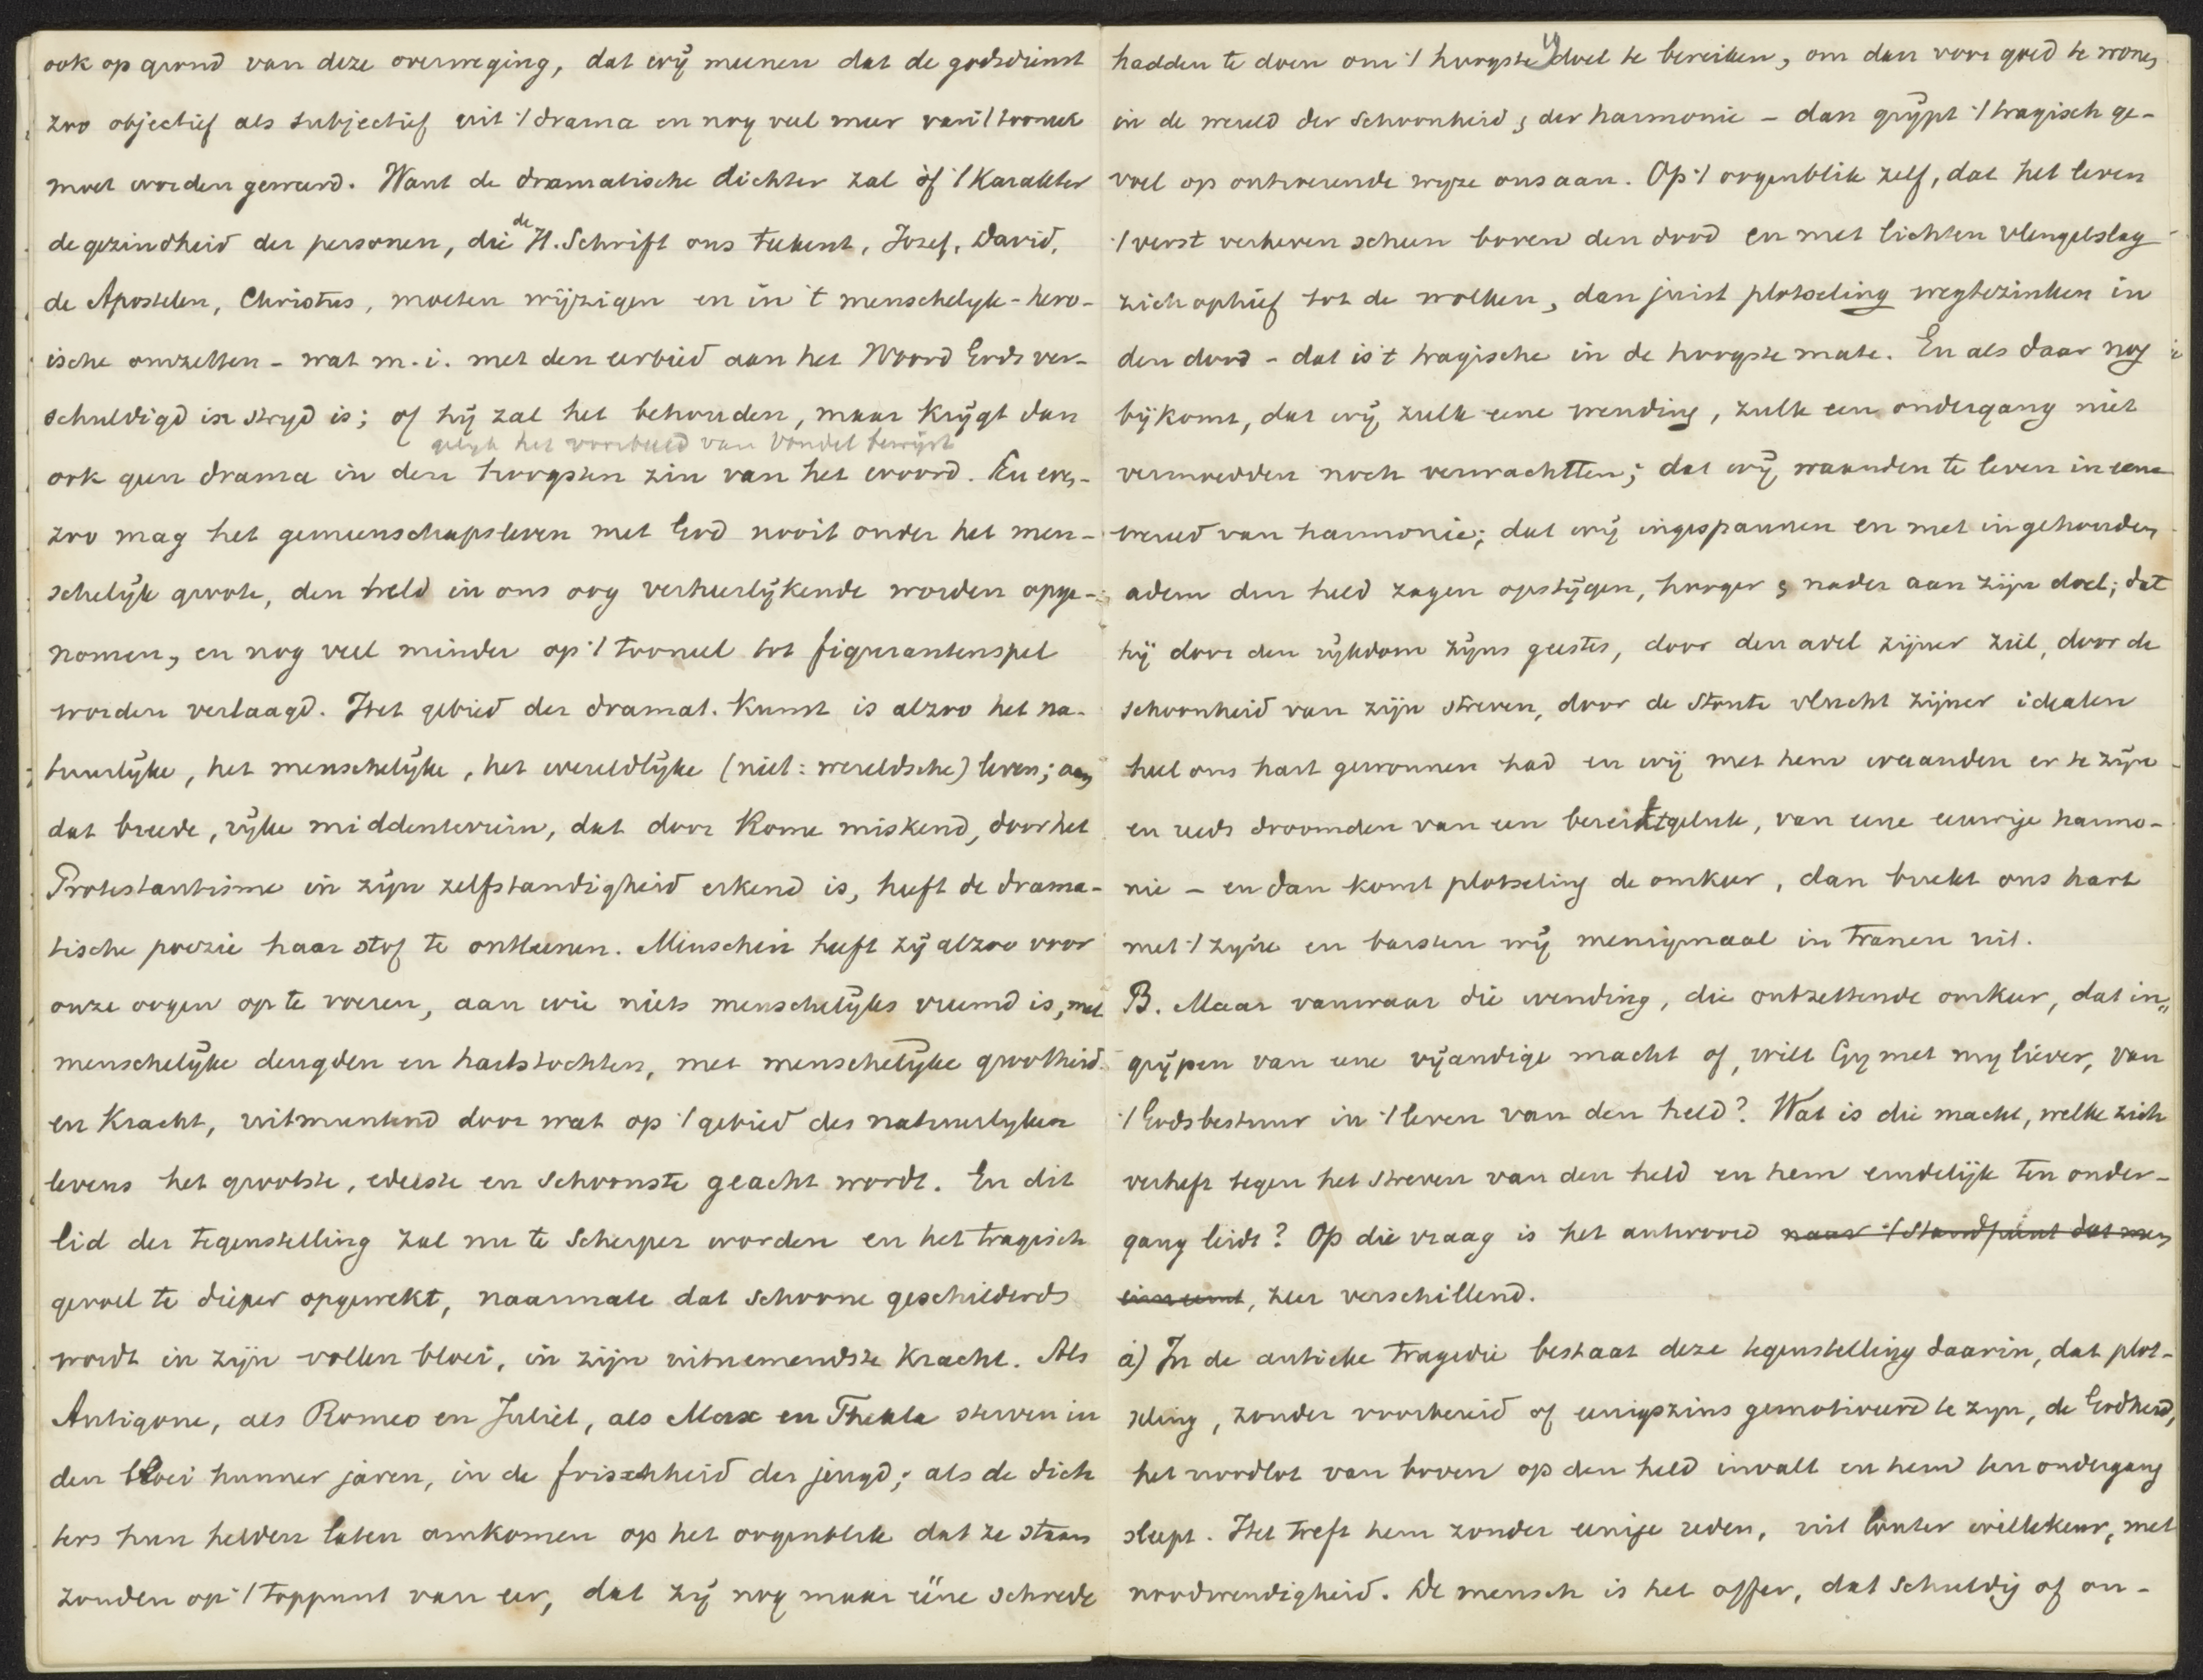 ook op grond van deze overweging, dat wij meenen dat de godsdienst
zoo objectief als subjectief uit 't drama en nog veel meer van 't tooneel
moet worden geweerd. Want de dramatische dichter zal òf 't Karakter
de gezindheid der personen, die de H. Schrift ons teekent, Jozef, David,
de Apostelen, Christus, moeten wijzigen en in 't menschelyk-hero-
ische omzetten - wat m.i. met den eerbied aan het Woord Gods ver-
schuldigd in stryd is; of hij zal het behouden, maar krijgt dan
gelyk het voorbeeld van Vondel bewijst
ook geen drama in den hoogsten zin van het woord. En even-
zoo mag het gemeenschapsleven met God nooit onder het men-
schelijk groote, den held in ons oog verheerlijkende worden opge-
nomen, en nog veel minder op 't tooneel tot figurantenspel
worden verlaagd. Het gebied der dramat. Kunst is alzoo het na-
tuurlijke, het menschelijke, het wereldlijke (niet: wereldsche) leven; aan
dat breede, rijke middenterrein, dat door Rome miskend, door het
Protestantisme in zijn zelfstandigheid erkend is, heeft de drama-
tische poezie haar stof te ontleenen. Menschen heeft zij alzoo voor
onze oogen op te voeren, aan wie niets menschelijks vreemd is, met
menschelijke deugden en hartstochten, met menschelijke grootheid
en Kracht, uitmuntend door wat op 't gebied des natuurlyken
levens het grootste, edelste en schoonste geacht wordt. En dit
lid der tegenstelling zal nu te scherper worden en het tragisch
gevoel te dieper opgewekt, naarmate dat schoone geschilderd
wordt in zijn vollen bloei, in zijn uitnemendste Kracht. Als
Antigone, als Romeo en Juliet, als Max en Thekla sterven in
den bloei hunner jaren, in de frischheid der jeugd; als de dich
ters hun helden laten omkomen op het oogenblik dat ze staan
zouden op 't toppunt van eer, dat zij nog maar ééne schrede
hadden te doen om 't hoogste doel te bereiken, om dan voor goed te wonen
in de wereld der schoonheid & der harmonie - dan grijpt 't tragisch ge-
voel op ontroerende wyze ons aan. Op 't oogenblik zelf, dat het leven
't verst verheven scheen boven den dood en met lichten vleugelslag
zich ophief tot de wolken, dan juist plotseling wegtezinken in
den dood - dat is 't tragische in de hoogste mate. En als daar nog
bijkomt, dat wij zulk eene wending, zulk een ondergang niet
vermoedden noch verwachtten; dat wij waanden te leven in eene
wereld van harmonie; dat wij ingespannen en met ingehouden
adem den held zagen opstijgen, hooger & nader aan zijn doel; dat
hij door den rijkdom zijns geestes, door den adel zijner ziel, door de
schoonheid van zijn streven, door de stoute vlucht zijner idealen
heel ons hart gewonnen had en wij met hem waanden er te zijn
en reeds droomden van een bereikt geluk, van eene eeuwige harmo-
nie - en dan komt plotseling de omkeer, dan breekt ons hart
met 't zijne en barsten wij menigmaal in tranen uit.
B. Maar vanwaar die wending, die ontzettende omkeer, dat in"
grijpen van eene vijandige macht of, wilt Gy met my liever, van
't Godsbestuur in 't leven van den held? Wat is die macht, welke zich
verheft tegen het streven van den held en hem eindelijk ten onder-
gang leidt? Op die vraag is het antwoord naar 't standpunt dat men
inneemt, zeer verschillend.
a) In de antieke tragedie bestaat deze tegenstelling daarin, dat plot-
seling, zonder voorbereid of eenigszins gemotiveerd te zyn, de Godheid,
het noodlot van boven op den held invalt en hem ten ondergang
sleept. Het treft hem zonder eenige reden, uit louter willekeur, met
noodwendigheid. De mensch is het offer, dat schuldig of on-